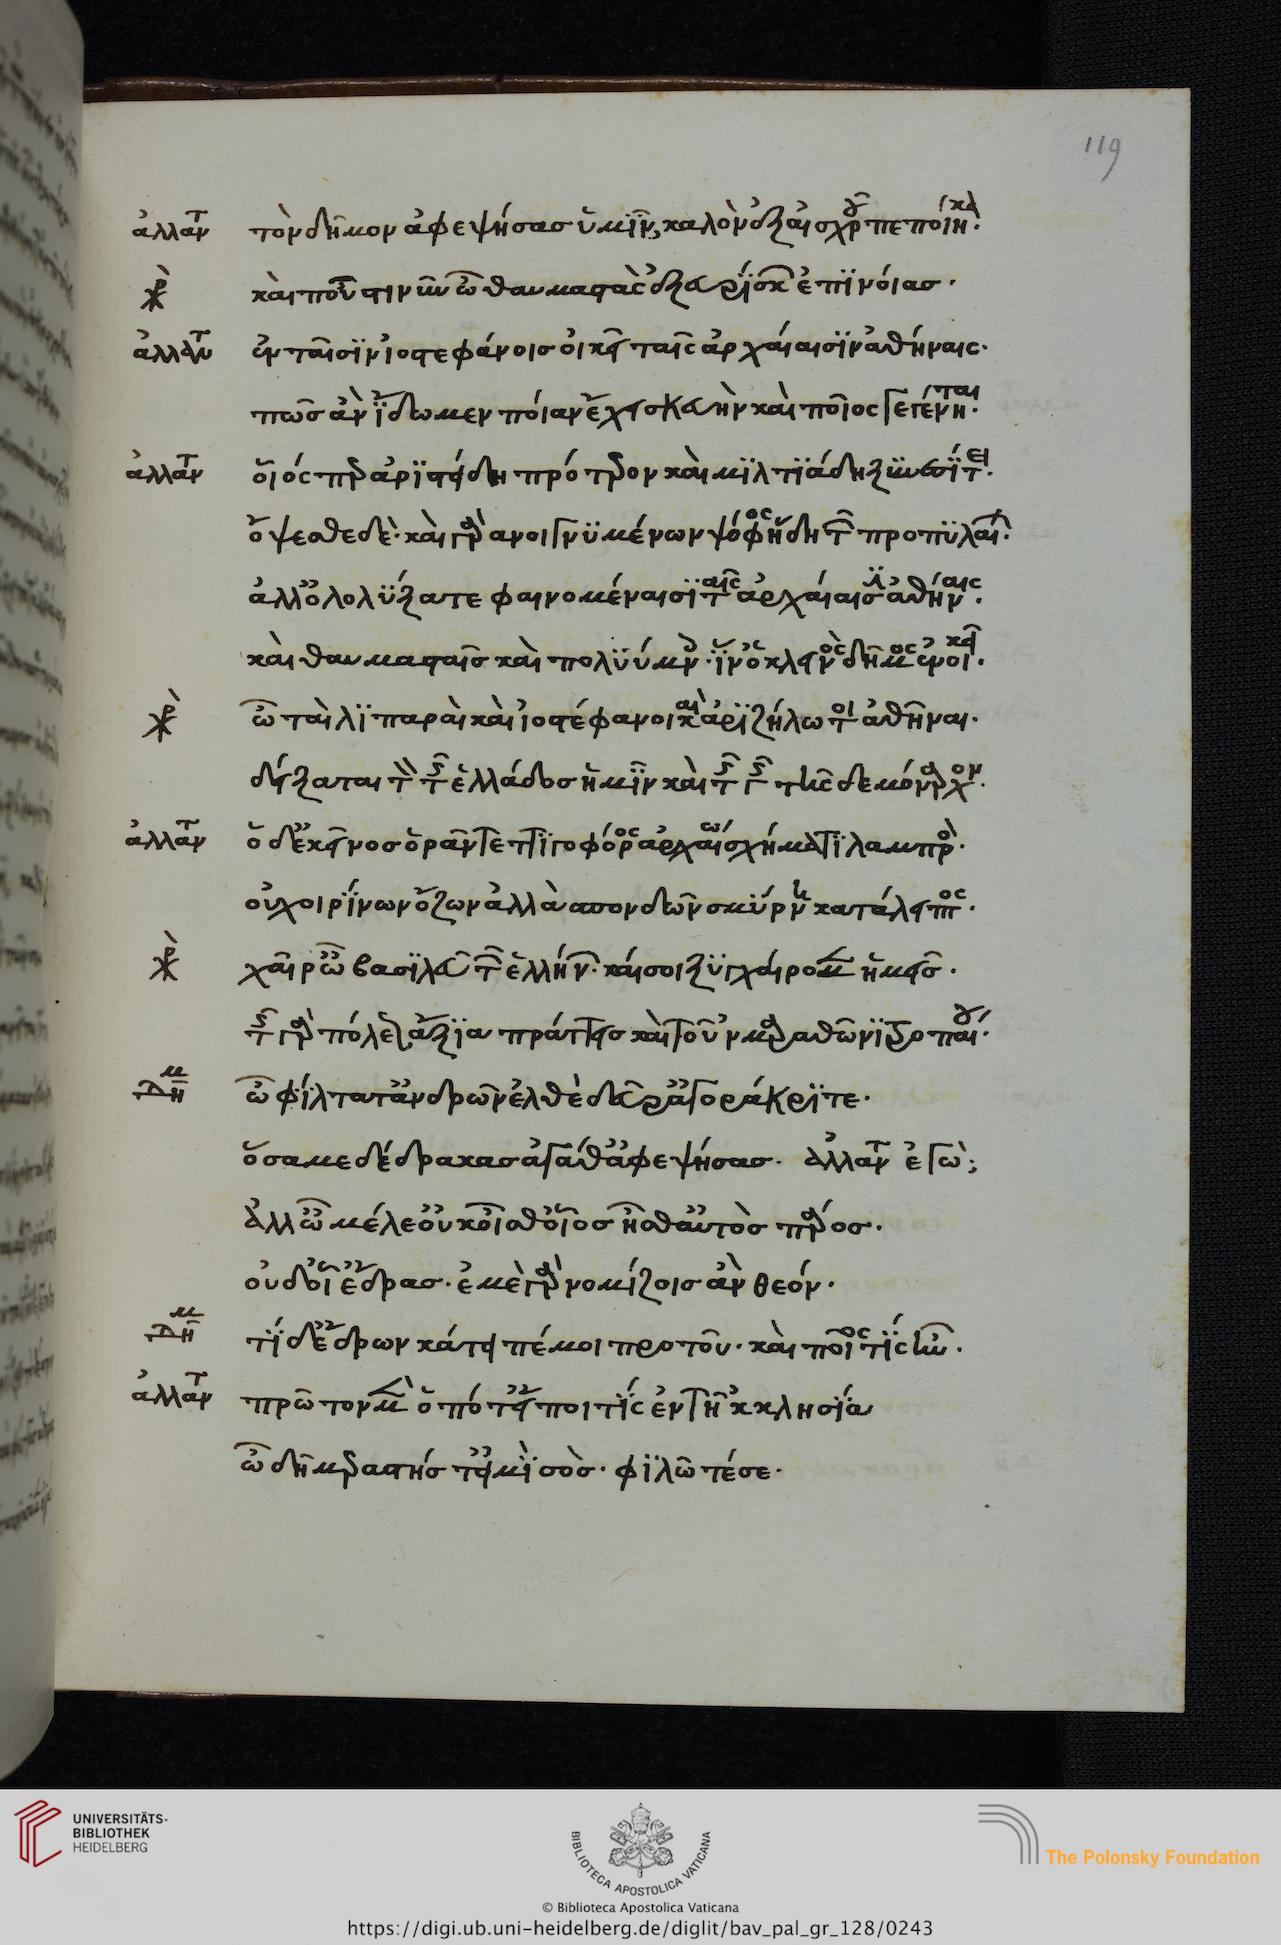 119
ἀλλαντ τὸν δῆμον ἀφεψήσας ὑμῖν, καλὸν ἐξ αἰσχροῦ πεποίηκα.
χρ καὶ ποῦ 'στιν νῦν ὦ θαυμαστὰς ἐξευρίσκων ἐπινοίας.
ἀλλαντ ἐν ταῖσιν ἰοστεφάνοις οἰκεῖ ταῖς ἀρχαίαισιν ἀθήναις.
πῶς ἂν ἴδωμεν ποίαν ἔχει σκευὴν καὶ ποῖος γεγένηται.
ἀλλαντ οἷός περ ἀριστείδῃ πρότερον καὶ μιλτιάδῃ ξυνεσίτει.
ὄψεσθε δὲ. καὶ γὰρ ἀνοιγνυμένων ψόφος ἤδη τῶν προπυλαίων.
ἀλλ' ὀλολύξατε φαινομέναισι ταῖς ἀρχαίαισιν ἀθήναις.
καὶ θαυμασταῖς καὶ πολυύμνοις. ἵν' ὁ κλεινὸς δῆμος ἐνοικεῖ.
χρ ὦ ταὶ λιπαραὶ καὶ ἰοστέφανοι καὶ ἀριζήλωτοι ἀθῆναι.
δείξατε τὸν τῆς ἑλλάδος ἡμῖν καὶ τῆς γῆς τῆσδε μόναρχον.
ἀλλαντ ὅδ' ἐκεῖνος ὁρᾶν τεττιγοφόρος ἀρχαίῳ σχήματι λαμπρός.
οὐ χοιρίνων ὄζων ἀλλὰ σπονδῶν σμύρνῃ κατάλειπτος.
χρ χαῖρ' ὦ βασιλεῦ τῶν ἑλλήνων. καί σοι ξυγχαίρομεν ἡμεῖς.
τῆς γὰρ πόλεως ἄξια πράττεις καὶ τοῦ 'ν μαραθῶνι τροπαίου.
δημ ὦ φίλτατ' ἀνδρῶν ἐλθὲ δεῦρ' ἀγοράκριτε.
ὅσα με δέδρακας ἀγάθ' ἀφεψήσας. ἀλλαντ ἐγώ;
ἀλλ' ὦ μέλε' οὐκ οἶσθ' οἷος ἦσθ' αὐτὸς πάρος.
οὐδ' οἷ' ἔδρας. ἐμὲ γὰρ νομίζοις ἂν θεόν.
δημ τί δ' ἔδρων κάτειπέ μοι πρὸ τοῦ. καὶ ποῖός τις ἦν.
ἀλλαντ πρῶτον μὲν ὁπότ' εἴποι τίς ἐν τῆ 'κκλησία
ὦ δῆμ' ἐραστής τ' εἰμὶ σὸς. φιλῶ τέ σε.
UNIVERSITÄTS-
BIBLIOTHEK
HEIDELBERG
BIBLIOTECA APOSTOLICA VATICANA
The Polonsky Foundation
© Biblioteca Apostolica Vaticana
https://digi.ub.uni-heidelberg.de/diglit/bav_pal_gr_128/0243